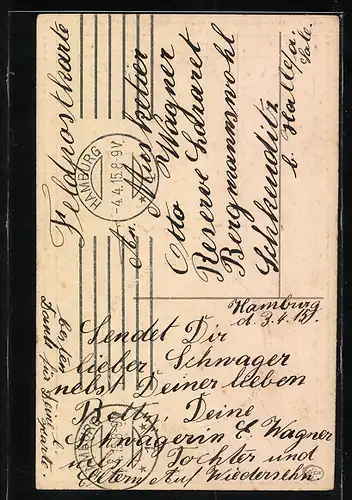 Feldpostkarte
HAMBURG
-4.4.15.8-9V
An Musketier
Otto Wagner
Reserve Lazaret
Bergmannswohl
Schkeuditz
b. Halle a/
Sale.
Hamburg
d. 3.4.15.
Sendet Dir
lieber Schwager
nebst Deiner lieben
Deine
Schwägerin E. Wagner
nebst Tochter und
Eltern Auf Wiedersehn
besten
Dank für
HAMBURG